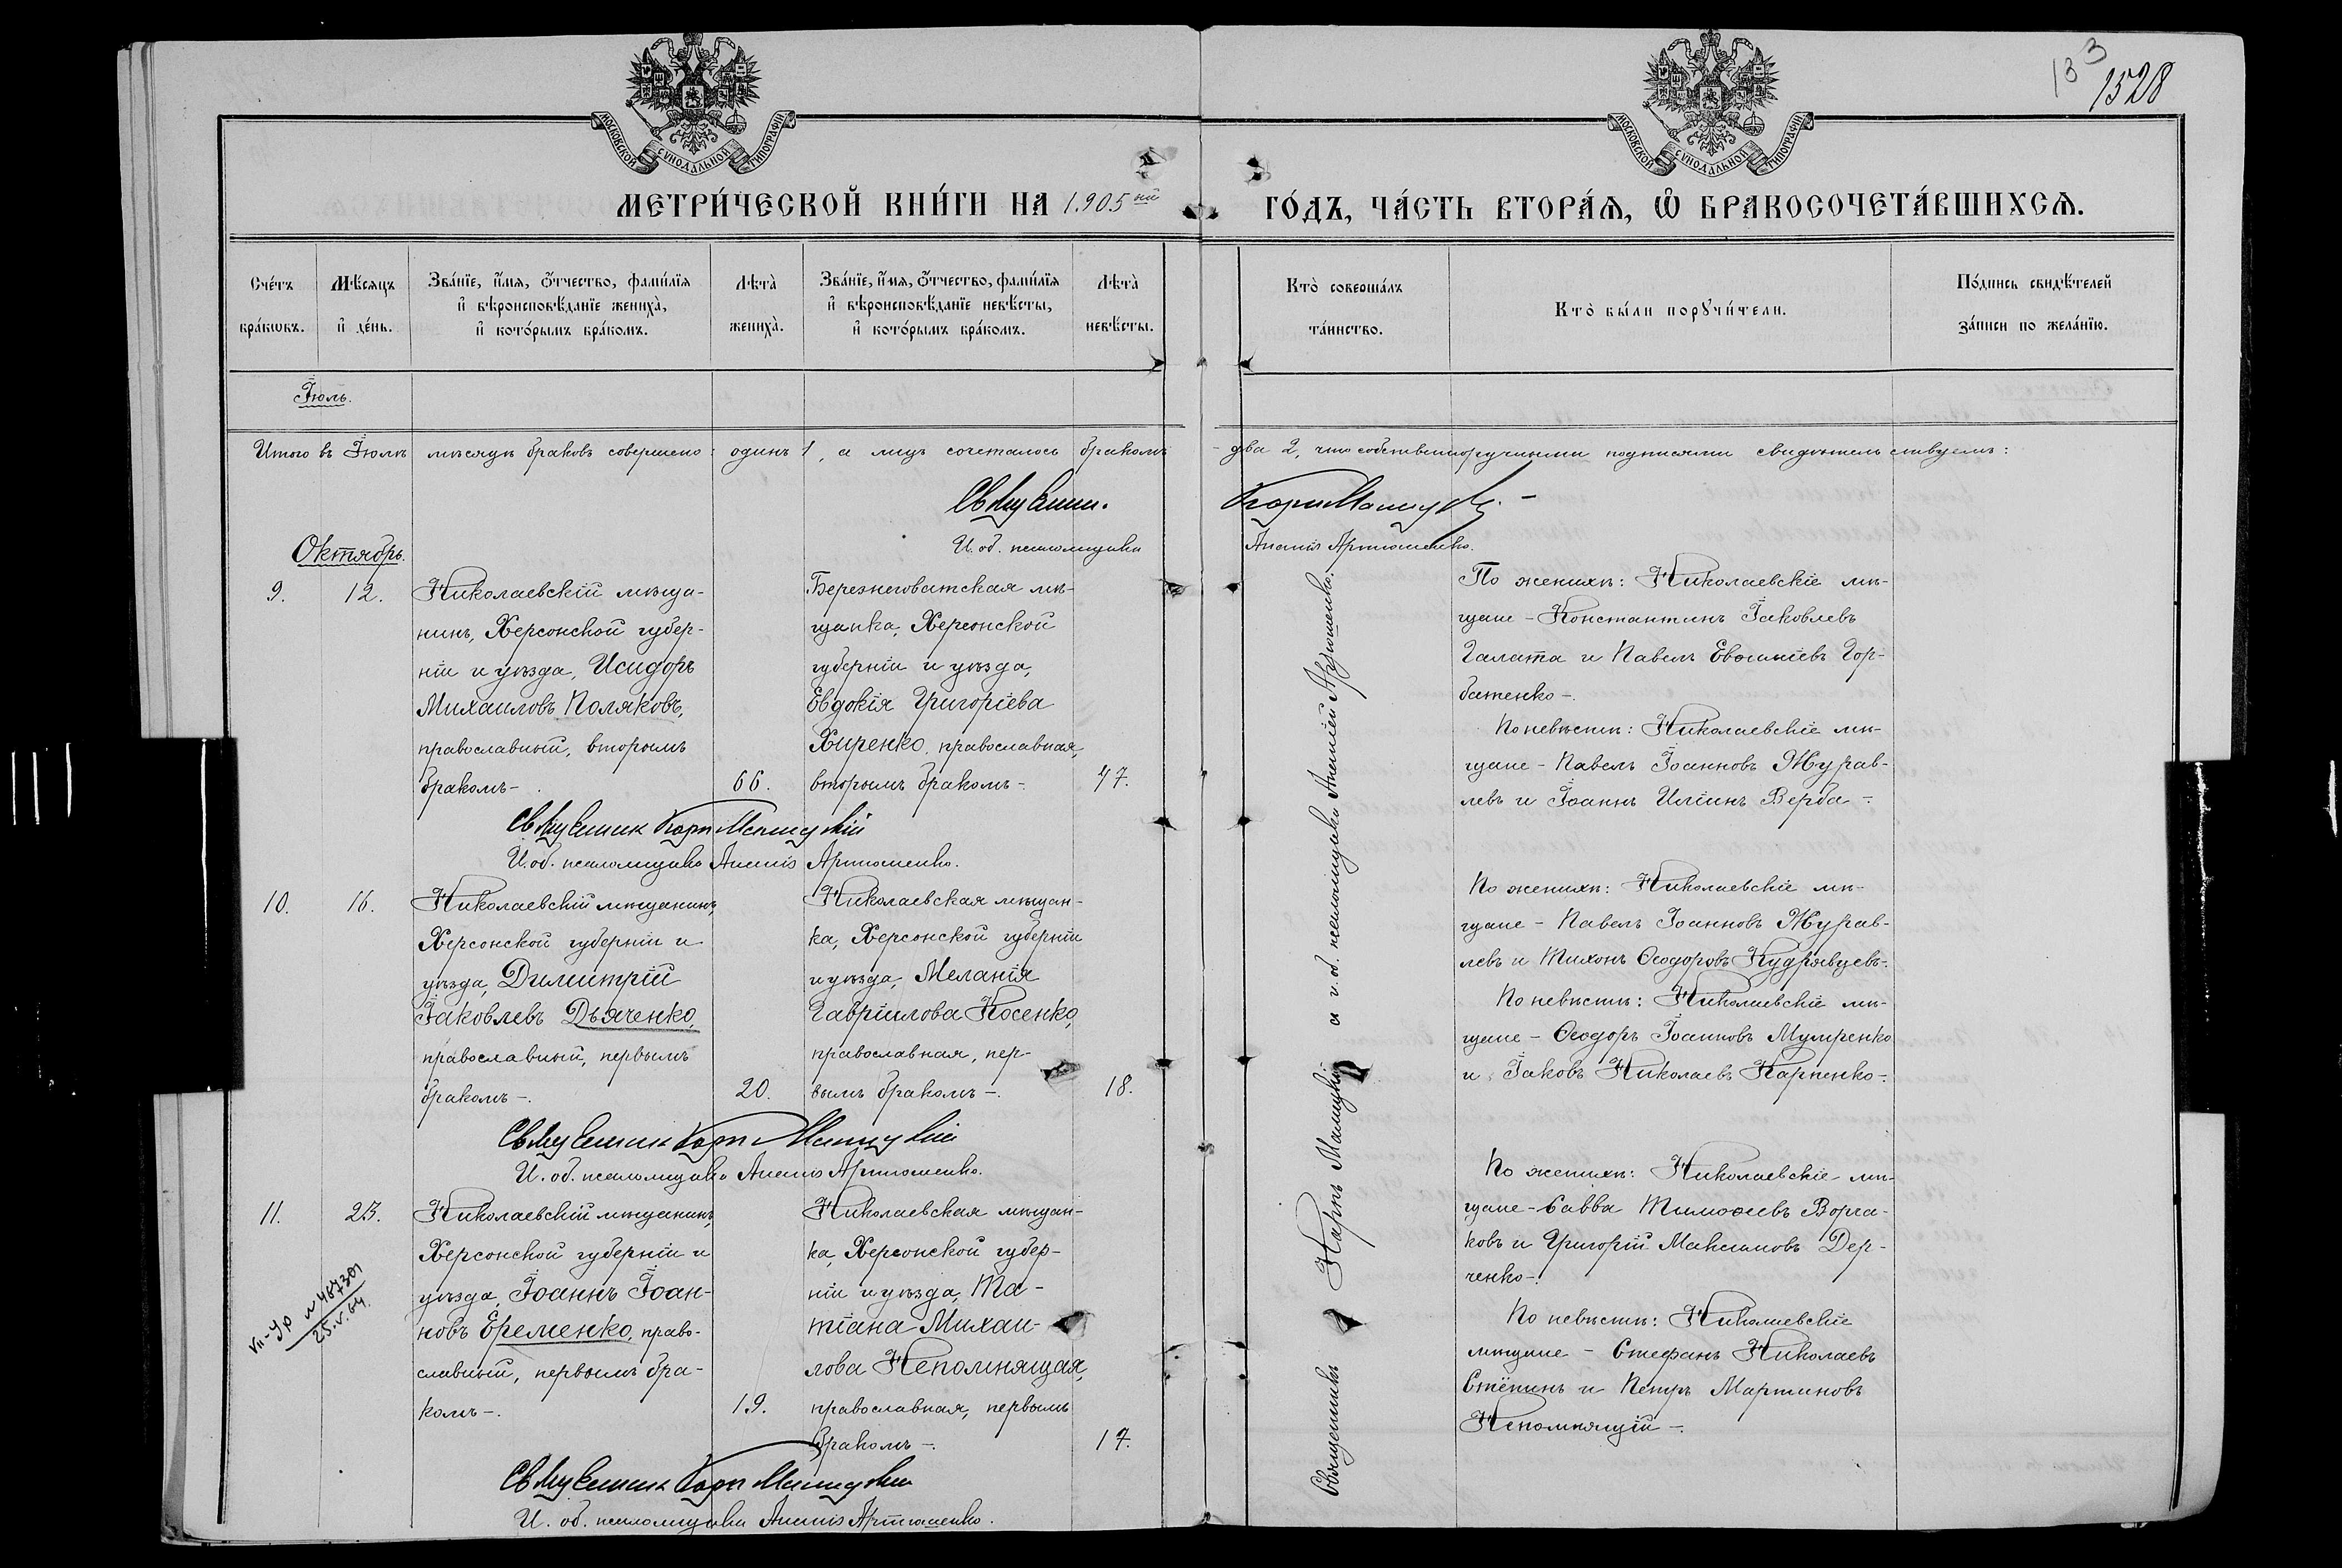 133
1528
МОСКОВСКОЙ СѴНОДАЛЬНОЙ ТИПОГРАФІИ
МОСКОВСКОЙ СѴНОДАЛЬНОЙ ТИПОГРАФІИ
МЕТРИ́ЧЕСКОЙ КНИ́ГИ НА 1905ый ГО́ДЪ, ЧА́СТЬ ВТОРА́Ѧ, Ѽ БРАКОСОЧЕТА́ВШИХСѦ.
Сче́тъ
бра́кѡвъ.
Мѣ́сяцъ
и де́нь.
Зва́нїе, и́мя, ѻ́тчество, фами́лїя
и вѣроисповѣ́данїе жениха̀,
и кото́рымъ бра́комъ.
Лѣта̀
жениха̀.
Зва́нїе, и́мя, ѻ́тчество, фами́лїя
и вѣроисповѣ́данїе невѣ́сты,
и кото́рымъ бра́комъ.
Лѣта̀
невѣ́сты.
Кто̀ соверша́лъ
та́инство.
Кто̀ бы́ли порꙋчи́тели.
По́дпись свидѣ́телей
за́писи по жела́нїю.
Іюль.
Итого въ Іюлѣ мѣсяцѣ браковъ совершено: одинъ 1, а лицъ сочеталось бракомъ - два 2, что собственноручными подписями свидѣтельствуемъ:
Священ. Карпъ Маницкій -
И. об. псаломщика Ананія Артюшенко.
Октябрь.
9.
12.
Николаевскій мѣща-
нинъ, Херсонской губер-
ніи и уѣзда, Исидоръ
Михаиловъ Поляковъ,
православный, вторымъ
бракомъ -
66.
Березнеговатская мѣ-
щанка, Херсонской
губерніи и уѣзда,
Евдокія Григоріева
Хиренко, православная,
вторымъ бракомъ -
47.
По женихѣ: Николаевскіе мѣ-
щане - Константинъ Іаковлевъ
Галата и Павелъ Евѳиміевъ Гор-
батенко -.
По невѣстѣ: Николаевскіе мѣ-
щане - Павелъ Іоанновъ Журав-
левъ и Іоаннъ Иліинъ Верба -.
Священник Карп Маницкій
И. об. псаломщика Ананія Артюшенко.
10.
16.
Николаевскій мѣщанинъ,
Херсонской губерніи и
уѣзда, Димитрій
Іаковлевъ Дьяченко,
православный, первымъ
бракомъ -.
20.
Николаевская мѣщан-
ка, Херсонской губерніи
и уѣзда, Меланія
Гавріилова Косенко,
православная, пер-
вымъ бракомъ -.
18.
По женихѣ: Николаевскіе мѣ-
щане - Павелъ Іоанновъ Журав-
левъ и Тихонъ Ѳеодоровъ Кудрявцевъ -.
По невѣстѣ: Николаевскіе мѣ-
щане - Ѳеодоръ Іоанновъ
и Іаковъ Николаевъ Карпенко -.
Священник Карп Маницкій
И. об. псаломщика Ананія Артюшенко.
11.
23.
Николаевскій мѣщанинъ,
Херсонской губерніи и
уѣзда, Іоаннъ Іоан-
новъ Еременко, право-
славный, первымъ бра-
комъ -.
19.
Николаевская мѣщан-
ка, Херсонской губер-
ніи и уѣзда, Та-
тіана Михаи-
лова Непомнящая,
православная, первымъ
бракомъ -.
17.
По женихѣ: Николаевскіе мѣ-
щане - Савва Тимоѳеевъ Ворча-
ковъ и Григорій Максимовъ Дер-
ченко -.
По невѣстѣ: Николаевскіе
мѣщане - Стефанъ Николаевъ
Стёпинъ и Петръ Мартиновъ
Непомнящій -.
N 487301
25.V.64.
Священник Карп Маницкій
И. об. псаломщика Ананія Артюшенко.
Священникъ Карпъ Маницкій и и. об. псаломщика Ананій Артюшенко.